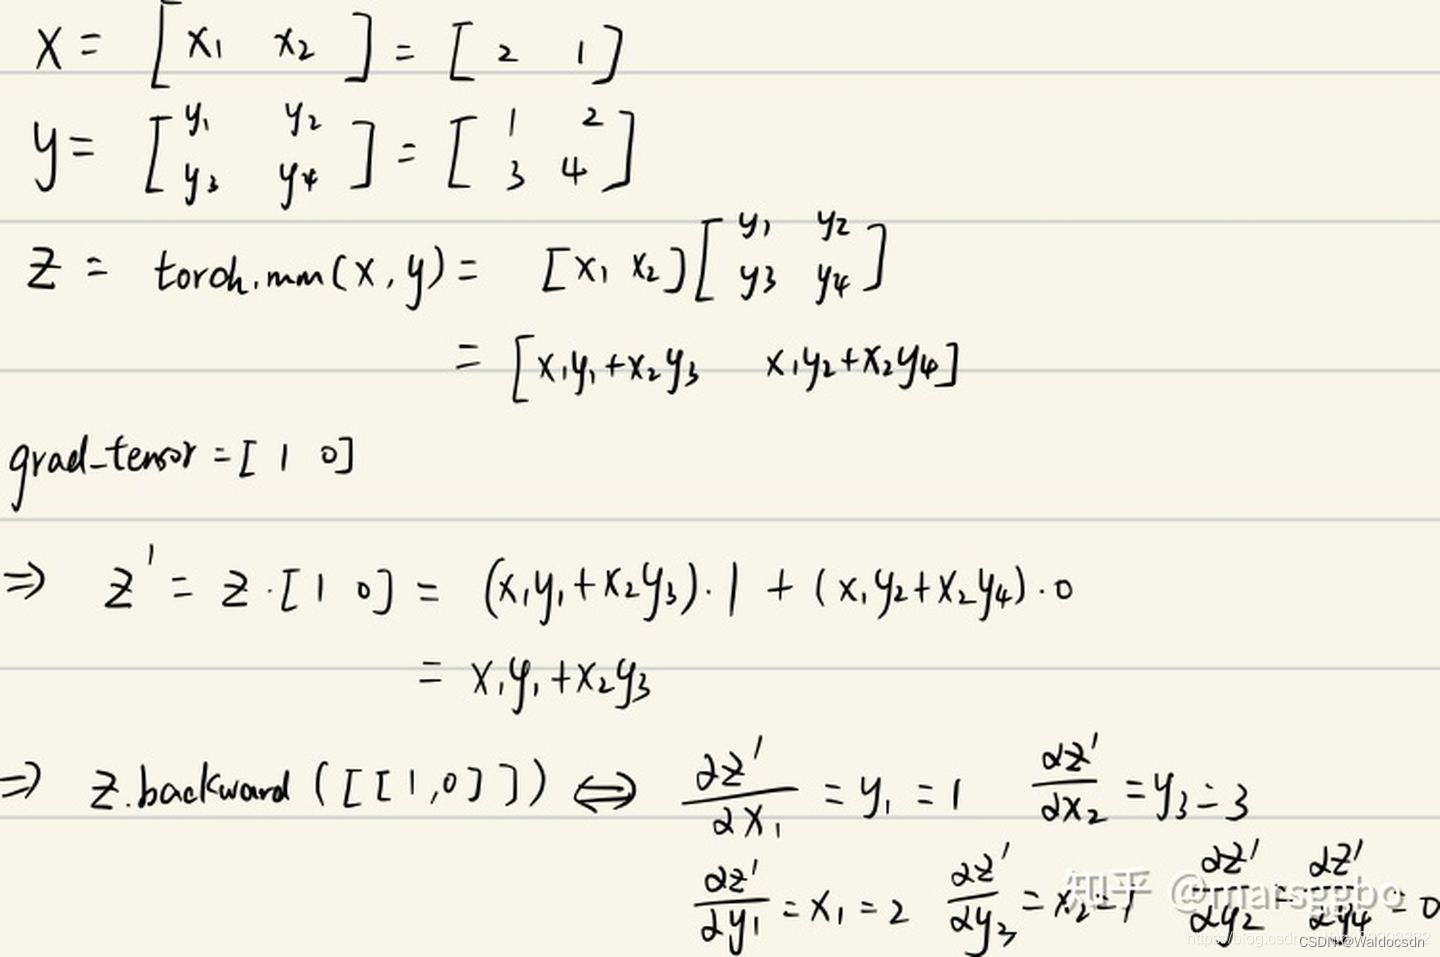 x = [ x₁ x₂ ] = [ 2 1 ]
y = [ y₁ y₂ ] = [ 1 2 ]
[ y₃ y₄ ] [ 3 4 ]
z = torch.mm(x, y) = [x₁ x₂] [ y₁ y₂ ]
[ y₃ y₄ ]
= [x₁y₁+x₂y₃ x₁y₂+x₂y₄]
grad_tensor = [ 1 0]
⇒ z' = z · [ 1 0] = (x₁y₁+x₂y₃)·1 + (x₁y₂+x₂y₄)·0
= x₁y₁+x₂y₃
⇒ z.backward ([[1,0]]) ⇔ ∂z'/∂x₁ = y₁ = 1 ∂z'/∂x₂ = y₃ = 3
∂z'/∂y₁ = x₁ = 2 ∂z'/∂y₃ = x₂ = 1 ∂z'/∂y₂ = ∂z'/∂y₄ = 0
知乎 @marsggbo
CSDN @Waldocsdn